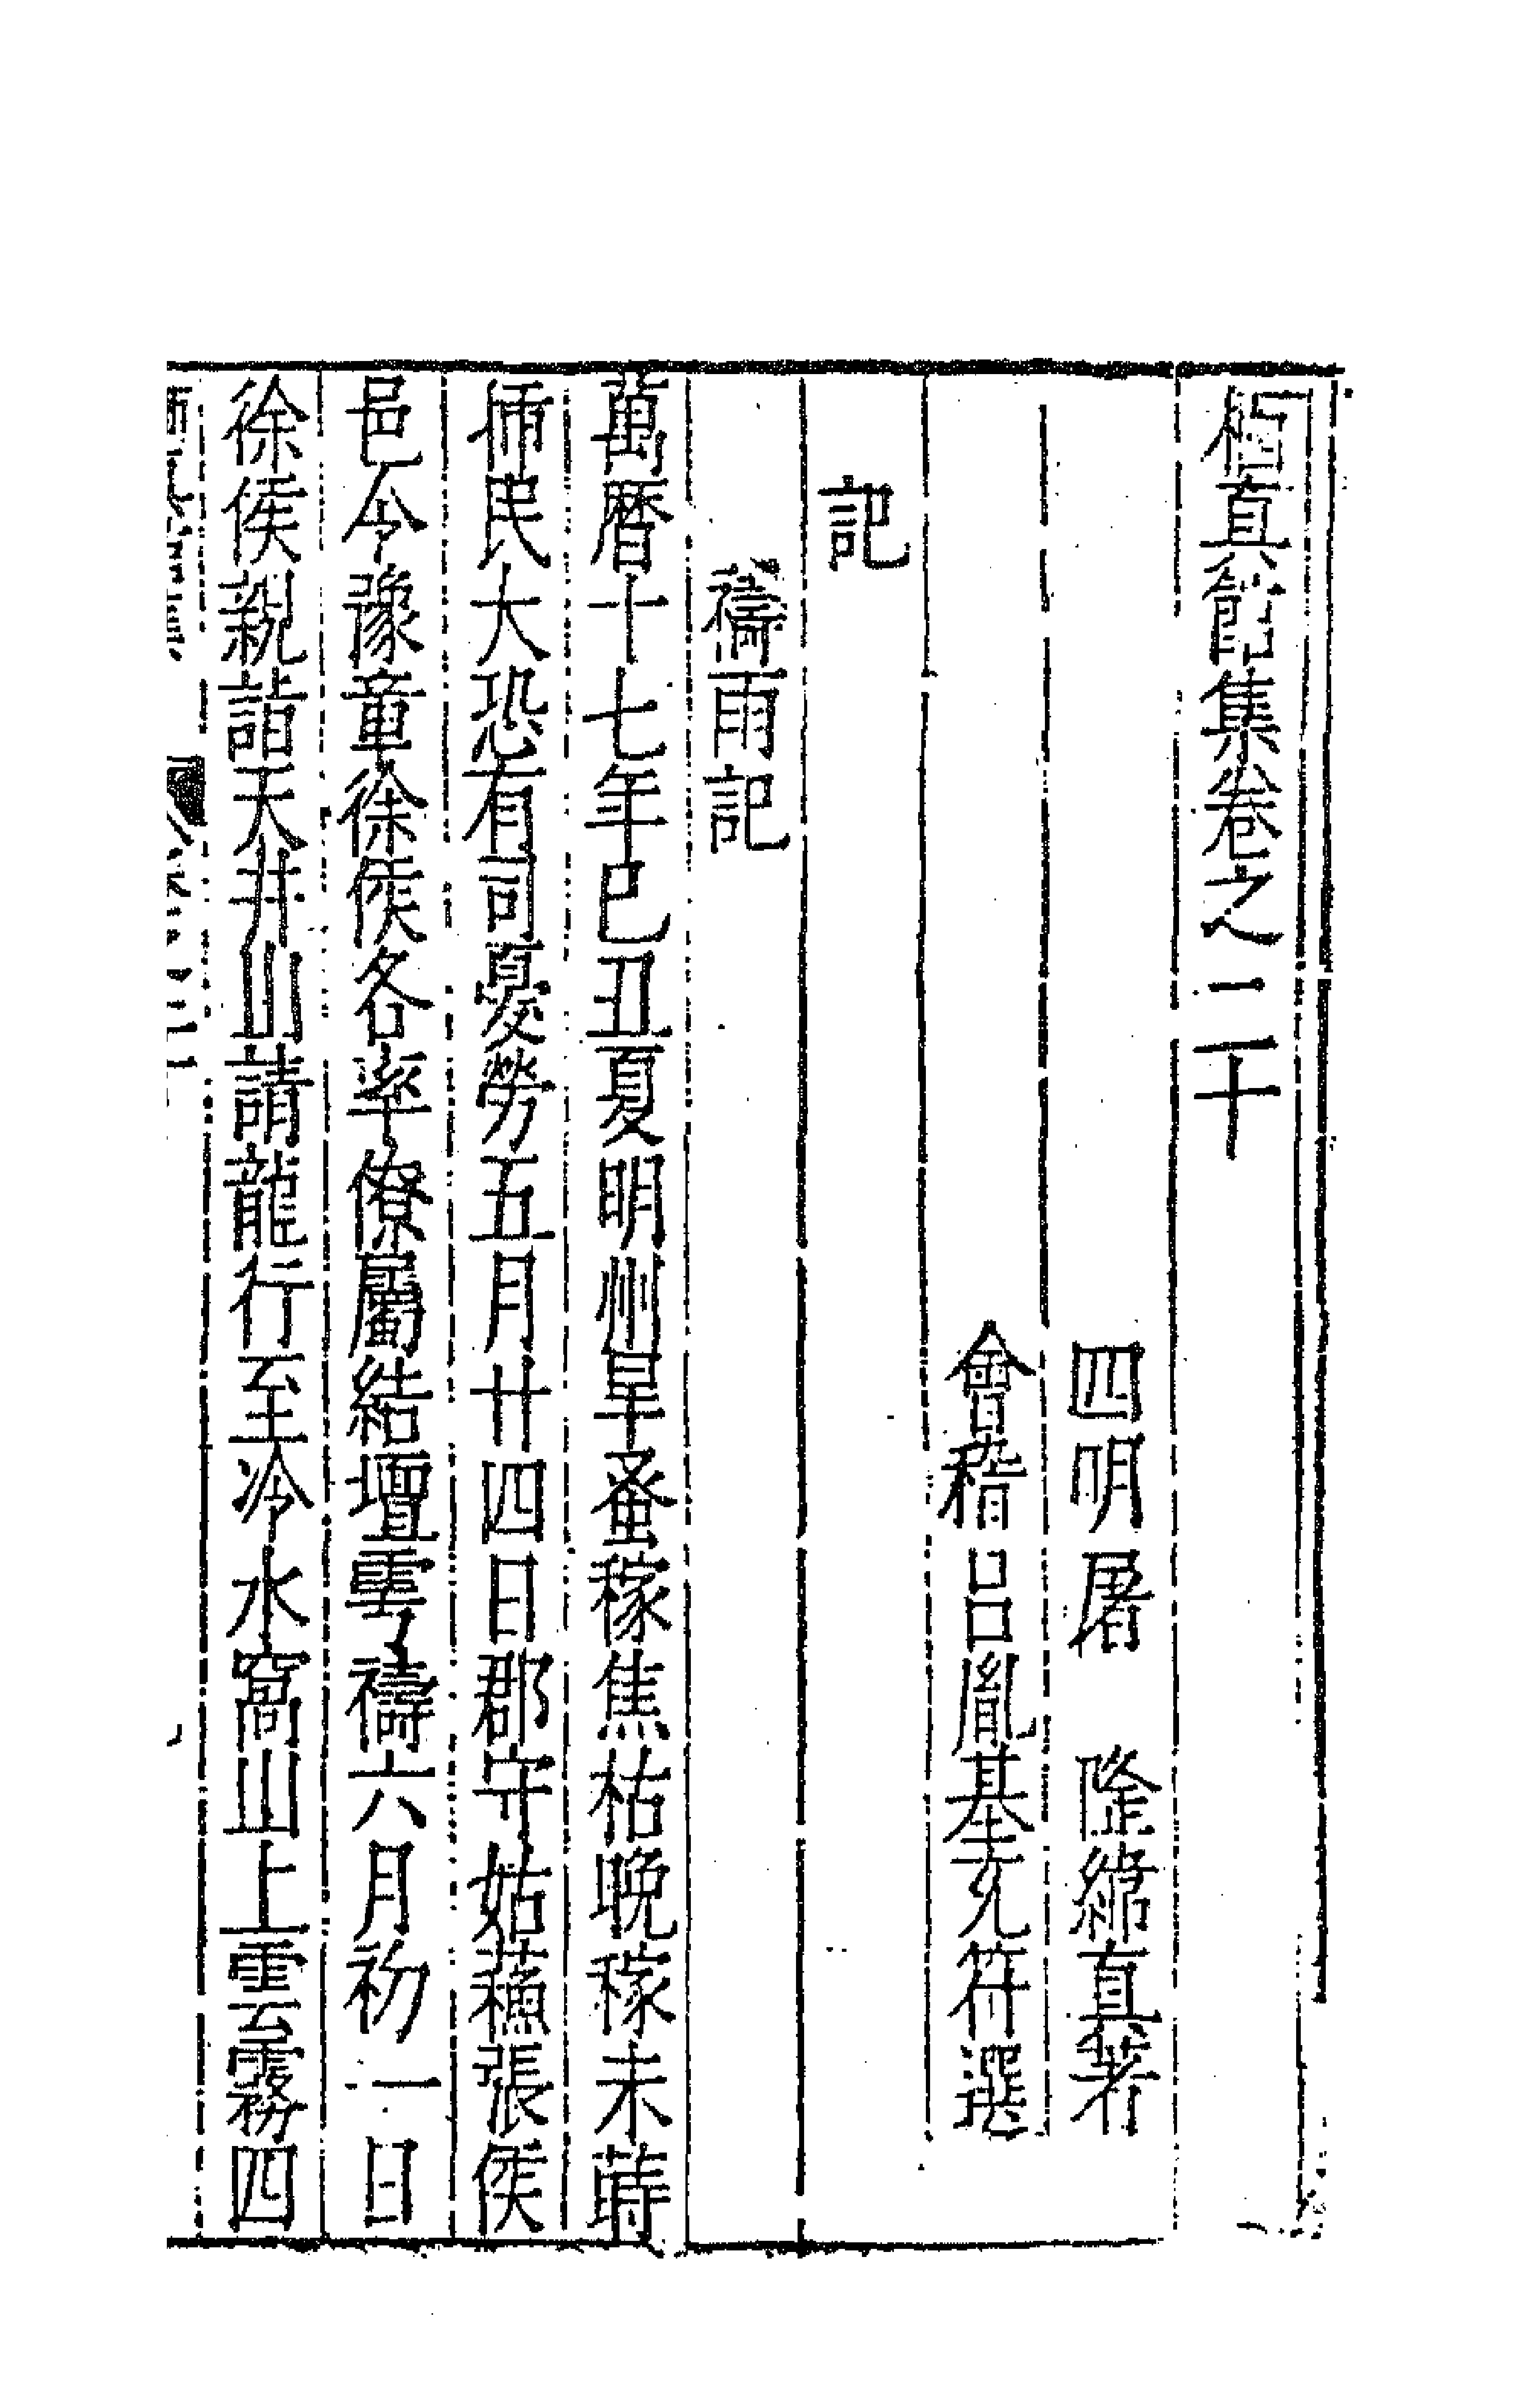 栖真館集卷之二十
四明屠　隆緯真著
會稽呂胤基玄符選
記
禱雨記
萬曆十七年巳丑夏明州旱蚤稼焦枯晚稼未蒔
揷民大恐有司憂勞五月廿四日郡守姑蘓張侯
邑令豫章徐侯各率僚屬結壇雩禱六月初一日
徐侯親詣天井山請龍行至冷水窩山上雲霧四